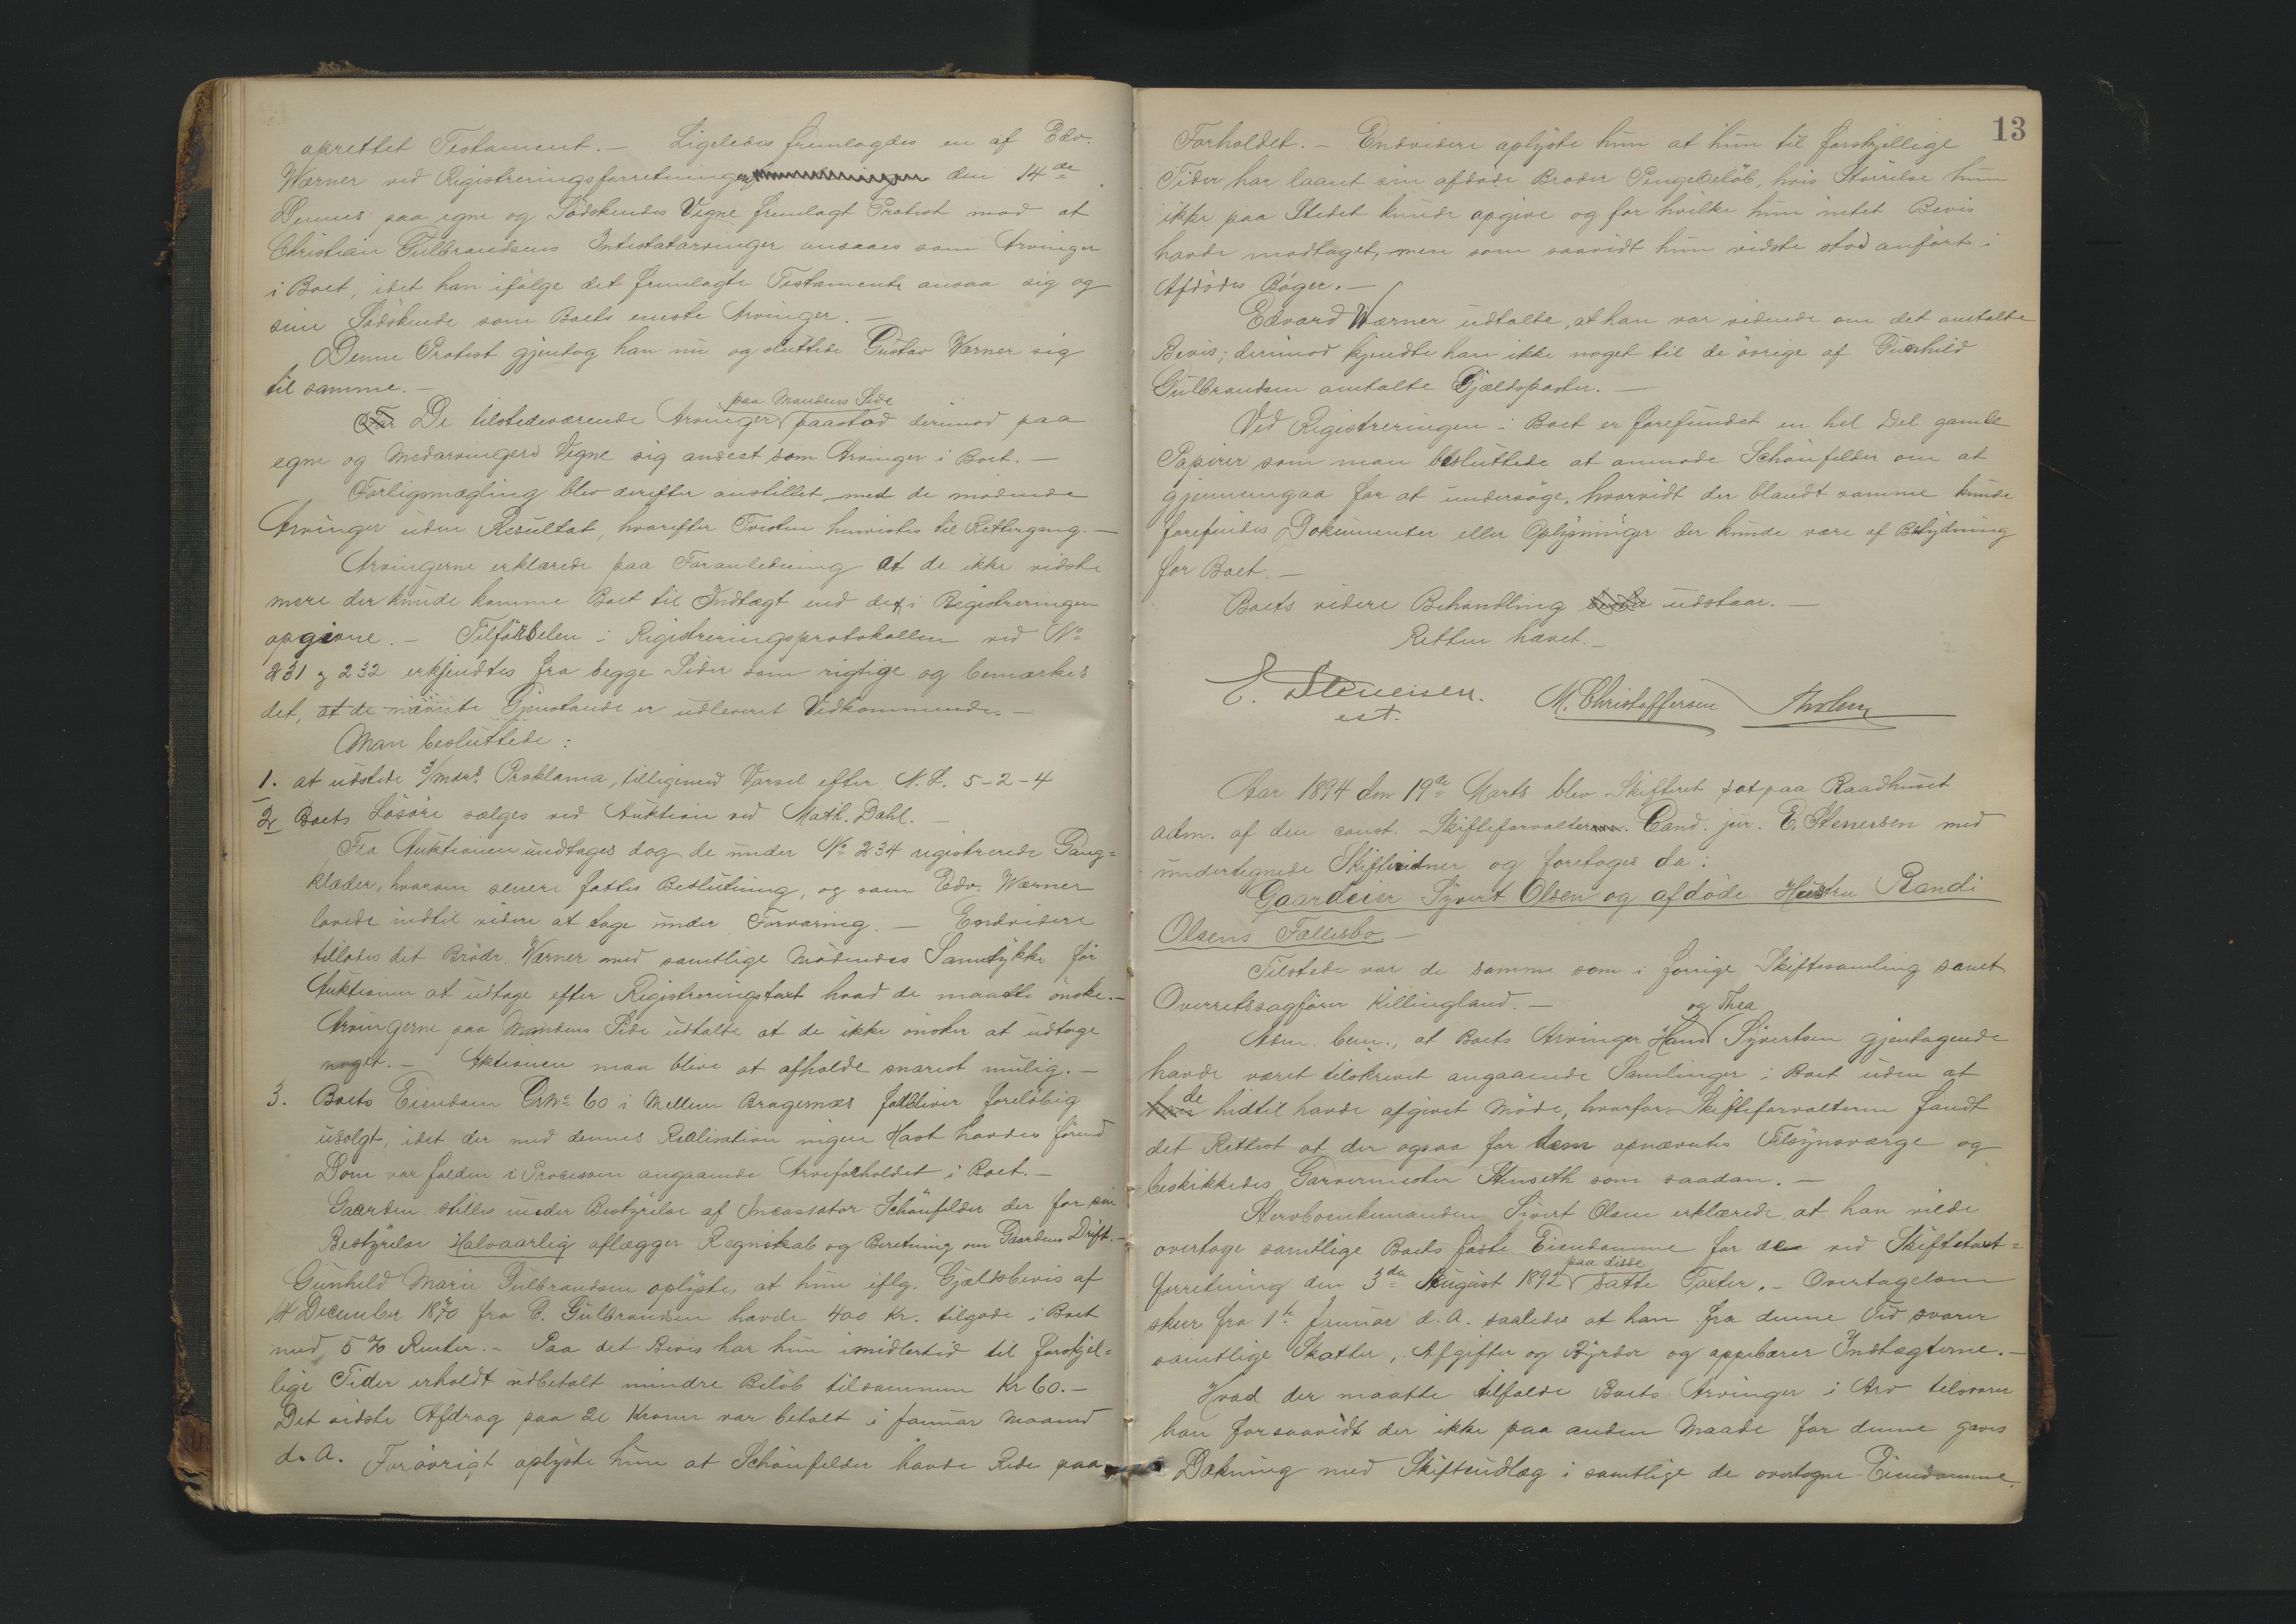 oprettet Testament. — Ligeledes fremlagdes en af Edv.
Wærner ved Registreringsforretningen den 14de
Dennes paa egne og Södskendes Vegne fremlagt Protest mod at
Christian Gulbrandsens Intestatarvinger ansaaes som Arvinger
i Boet, idet han ifölge det fremlagte Testamente ansaa sig og
sine Södskende som Boets eneste Arvinger. —
Denne Protest gjentog han nu og sluttede Gustav Wærner sig
til samme. —
paa Mandens Side
De tilstedeværende Arvinger paastod derimod paa
egne og Medarvingers Vegne sig anseet som Arvinger i Boet. —
Forligsmægling blev derefter anstillet med de mödende
Arvinger uden Resultat, hvorefter Tvisten henvistes til Rettergang. —
Arvingerne erklærede paa Foranledning at de ikke vidste
mere der kunde komme Boet til Indtægt end det i Registreringen
opgivne. — Tilförselen i Registreringsprotokollen ved No
231 og 232 erkjendtes fra begge Sider som rigtige og bemærkes
det, at de nævnte Gjenstande er udleveret Vedkommende. —
Man besluttede:
1. at udstede 3/mdrs. Proklama, tilligemed Varsel efter N. L. 5-2-4
2. Boets Lösöre sælges ved Auktion ved Math. Dahl. —
Fra Auktionen undtages dog de under No 234 registrerede Gang=
klæder, hvorom senere fattes Beslutning, og som Edv. Wærner
lovede indtil videre at tage under Forvaring. — Endvidere
tillodes det Brödr. Wærner med samtlige Mödendes Samtykke för
Auktionen at udtage efter Registreringstaxt hvad de maatte önske. —
Arvingerne paa Mandens Side udtalte at de ikke önsker at udtage
noget. — Aktionen maa blive at afholde snarest mulig. —
3. Boets Eiendom Grno 60 i Mellem Bragernæs forbliver foreløbig
usolgt, idet der med dennes Realisation ingen Hast havdes förend
Dom var falden i Processen angaaende Arveforholdet i Boet. —
Gaarden stilles under Bestyrelse af Incassator Schönfelder der for sin
Bestyrelse Halvaarlig aflægger Regnskab og Beretning om Gaardens Drift. —
Gunhild Marie Gulbrandsen oplyste, at hun iflg. Gjældsbevis af
14 December 1870 fra C. Gulbrandsen havde 400 Kr. tilgode i Boet
med 5 % Renter. — Paa det Bevis har hun imidlertid til forskjel=
lige Tider erholdt udbetalt mindre Belöb tilsammen Kr 60. —
Det sidste Afdrag paa 20 Kroner var betalt i Januar Maaned
d. A. Forövrigt oplyste hun at Schönfelder havde Rede paa
13
Forholdet. — Endvidere oplyste hun at hun til forskjellige
Tider har laant sin afdöde Broder Pengebelöb, hvis Störrelse hun
ikke paa Stedet kunde opgive og for hvilke hun intet Bevis
havde modtaget, men som saavidt hun vidste stod anfört i
Afdödes Böger. —
Edvard Wærner udtalte, at han var vidende om det omtalte
Bevis; derimod kjendte han ikke noget til de övrige af Gunhild
Gulbrandsen omtalte Gjældsposter. —
Ved Registreringen i Boet er forefundet en hel Del gamle
Papirer som man besluttede at anmode Schönfelder om at
gjennemgaa for at undersöge, hvorvidt der blandt samme kunde
forefindes Dokumenter eller Oplysninger der kunde være af Betydning
for Boet. —
Boets videre Behandling udstaar. —
Retten hævet. —
E. Stenersen.
cst.
M. Christoffersen
Aar 1894 den 19de Marts blev Skifteret sat paa Raadhuset
adm. af den const. Skifteforvalter Cand. jur. E. Stenersen med
undertegnede Skiftevidner og foretoges da:
Gaardeier Syvert Olsen og afdöde Hustru Randi
Olsens Fællesbo. —
Tilstede var de samme som i forrige Skiftesamling samt
Overretssagförer Killingland. —
og Thea
Adm. bem., at Boets Arvinger Hans Syvertsen gjentagende
havde været tilskrevet angaaende Samlinger i Boet uden at
de
hidtil havde afgivet Möde, hvorfor Skifteforvalteren fandt
det Rettest at der ogsaa for dem opnævntes Tilsynsværge og
beskikkedes Garvermester Stenseth som saadan. —
Stervboenkemanden Sivert Olsen erklærede, at han vilde
overtage samtlige Boets faste Eiendomme for de ved Skiftetaxt=
paa disse
forretning den 3die August 1892 satte Taxter. — Overtagelsen
skeer fra 1ste Januar d. A. saaledes at han fra denne Tid svarer
samtlige Skatter, Afgifter og Byrder og oppebærer Indtægterne. —
Hvad der maatte tilfalde Boets Arvinger i Arv tilsvarer
han forsaavidt der ikke paa anden Maade for denne gaves
Dækning med Skifteudlæg i samtlige de overtagne Eiendomme.